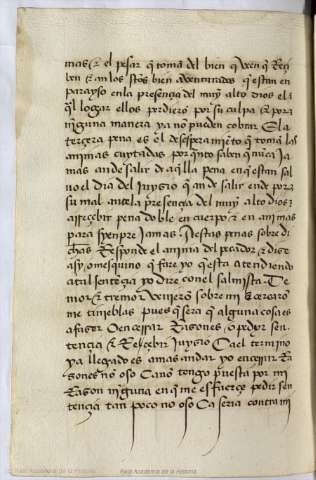 mas ⁊ el pesar q̃ toma del bien q̃ veen q̃ Resçi
ben ⁊ an los stõs bien aventurados q̃ estan en
parayso en la presençia del muy alto dios el a
q̃l logar ellos perdierõ por su culpa ⁊ por a
ninguna manera ya no pueden cobrar Ela
terçera pena es el desespera miẽto q̃ toma las
animas cuytadas por q̃nto saben q̃ nũca Ja
mas an de salir de aq̃lla pena en q̃ estan sal
vo el dia del iuyzio q̃ an de salir ende por a
su mal ante la presençia del muy alto dios a
Resçebir pena doble en cuerpo ⁊ en animas
para syenpre Jamas Destas penas sobre di
chas Responde el anima del pecador ⁊ dize
asy o mesquino q̃ fare yo q̃ esta atendiendo
a tal sentẽçia podire con el salmista Te
mor ⁊ tremor vinierõ sobre mi ⁊ çercarõ
me tinieblas pues q̃ sera q̃ alguna cosa es
a fazer O ençessar Razones o pedir sen
tencia ⁊ Resçebir Juyzio Ca el termino
ya llegado es a mas andar yo ençessir Ra
zones nõ oso Ca nõ tengo puesta por mi
Razon ninguna en q̃ me esfuerçe pedir sen
tençia tan poco nõ oso Ca seria contra mi
Real Academia de la Historia
Real Academia de la Historia